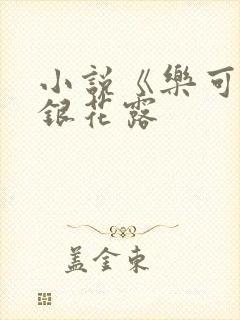 小説《樂可
銀花露
蓋金東